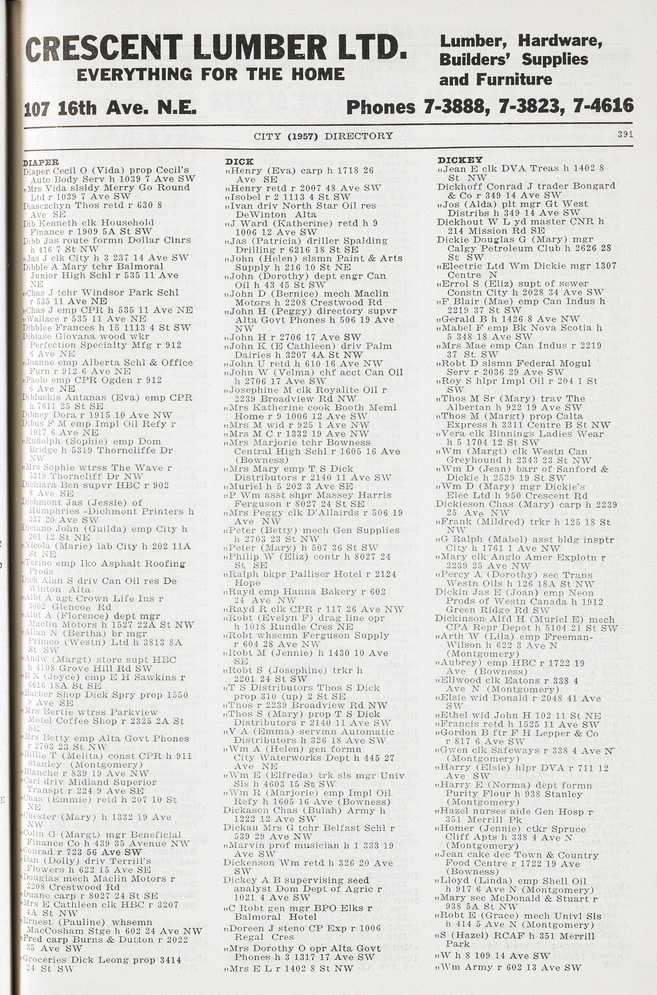 CRESCENT LUMBER LTD.
EVERYTHING FOR THE HOME
Lumber, Hardware,
Builders' Supplies
and Furniture
107 16th Ave. N.E.
Phones 7-3888, 7-3823, 7-4616
CITY (1957) DIRECTORY
391
DIAPER
Diaper Cecil O (Vida) prop Cecil's
Auto Body Serv h 1039 7 Ave SW
„Mrs Vida slsldy Merry Go Round
Ltd r 1039 7 Ave SW
Diasczchyn Thos retd r 630 8
Ave SE
Dib Kenneth clk Household
Finance r 1909 5A St SW
Dibb Jas route formn Dollar Clnrs
h 416 7 St NW
„Jas J clk City h 3 237 14 Ave SW
Dibble A Mary tchr Balmoral
Junior High Schl r 535 11 Ave
NE
„Chas J tchr Windsor Park Schl
r 535 11 Ave NE
„Chas J emp CPR h 535 11 Ave NE
„Wallace r 535 11 Ave NE
Dibblee Frances h 15 1113 4 St SW
Dibiase Giovana wood wkr
Perfection Specialty Mfg r 912
6 Ave NE
„Joanne emp Alberta Schl & Office
Furn r 912 6 Ave NE
„Paolo emp CPR Ogden r 912
6 Ave NE
Dibluskis Antanas (Eva) emp CPR
h 7611 25 St SE
Dibney Dora r 1915 10 Ave NW
Dibus F M emp Imp Oil Refy r
1017 6 Ave NE
„Rudolph (Sophie) emp Dom
Bridge h 5319 Thorncliffe Dr
NW
„Mrs Sophie wtrss The Wave r
5319 Thorncliff Dr NW
Dichiara Ben supvr HBC r 902
8 Ave SE
Dichmont Jas (Jessie) of
Humphries -Dichmont Printers h
337 20 Ave SW
Diciano John (Guilda) emp City h
201 12 St NE
„Nicola (Marie) lab City h 202 11A
St NE
„Torino emp Iko Asphalt Roofing
Prods
Dick Alan S driv Can Oil res De
Winton Alta
„Albt A agt Crown Life Ins r
3002 Glencoe Rd
„Albt A (Florence) dept mgr
Maclin Motors h 1527 22A St NW
„Allan N (Bertha) br mgr
Primco (Westn) Ltd h 3813 8A
St SW
„Andw (Margt) store supt HBC
h 4108 Grove Hill Rd SW
„B N (Joyce) emp E H Sawkins r
4616 18A St SE
„Barber Shop Dick Spry prop 1550
9 Ave SE
„Mrs Bertie wtrss Parkview
Motel Coffee Shop r 2325 2A St
SE
„Mrs Betty emp Alta Govt Phones
r 2703 23 St NW
„Billie T (Melita) const CPR h 911
Stanley (Montgomery)
„Blanche r 839 19 Ave NW
„Carl driv Midland Superior
Transpt r 224 9 Ave SE
„Chas (Emmie) retd h 207 10 St
NE
„Chester (Mary) h 1332 19 Ave
NW
„Colin G (Margt) mgr Beneficial
Finance Co h 439 35 Avenue NW
„Conrad r 723 56 Ave SW
„Dan (Dolly) driv Terrill's
Flowers h 622 15 Ave SE
„Douglas mech Maclin Motors r
2208 Crestwood Rd
„Duane carp r 8027 24 St SE
„Mrs E Cathleen clk HBC r 3207
4A St NW
„Ernest (Pauline) whsemn
MacCosham Stge h 602 24 Ave NW
„Fred carp Burns & Dutton r 2022
35 Ave SW
„Groceries Dick Leong prop 3414
24 St SW
DICK
„Henry (Eva) carp h 1718 26
Ave SE
„Henry retd r 2007 48 Ave SW
„Isobel r 2 1113 4 St SW
„Ivan driv North Star Oil res
DeWinton Alta
„J Ward (Katherine) retd h 9
1006 12 Ave SW
„Jas (Patricia) driller Spalding
Drilling r 6216 18 St SE
„John (Helen) slsmn Paint & Arts
Supply h 216 10 St NE
„John (Dorothy) dept engr Can
Oil h 43 45 St SW
„John D (Bernice) mech Maclin
Motors h 2208 Crestwood Rd
„John H (Peggy) directory supvr
Alta Govt Phones h 506 19 Ave
NW
„John H r 2706 17 Ave SW
„John K (E Cathleen) driv Palm
Dairies h 3207 4A St NW
„John U retd h 610 16 Ave NW
„John W (Velma) chf acct Can Oil
h 2706 17 Ave SW
„Josephine M clk Royalite Oil r
2239 Broadview Rd NW
„Mrs Katherine cook Booth Meml
Home r 9 1006 12 Ave SW
„Mrs M wid r 925 1 Ave NW
„Mrs M C r 1332 19 Ave NW
„Mrs Marjorie tchr Bowness
Central High Schl r 1605 16 Ave
(Bowness)
„Mrs Mary emp T S Dick
Distributors r 2140 11 Ave SW
„Muriel h 5 202 3 Ave SE
„P Wm asst shpr Massey Harris
Ferguson r 8027 24 St SE
„Mrs Peggy clk D'Allairds r 506 19
Ave NW
„Peter (Betty) mech Gen Supplies
h 2703 23 St NW
„Peter (Mary) h 507 36 St SW
„Philip W (Eliz) contr h 8027 24
St SE
„Ralph bkpr Palliser Hotel r 2124
Hope
„Rayd emp Hanna Bakery r 602
24 Ave NW
„Rayd R clk CPR r 117 26 Ave NW
„Robt (Evelyn F) drag line opr
h 1018 Rundle Cres NE
„Robt whsemn Ferguson Supply
r 604 28 Ave NW
„Robt M (Jennie) h 1430 10 Ave
SE
„Robt S (Josephine) trkr h
2201 24 St SW
„T S Distributors Thos S Dick
prop 310 (up) 2 St SE
„Thos r 2239 Broadview Rd NW
„Thos S (Mary) prop T S Dick
Distributors r 2140 11 Ave SW
„V A (Emma) servmn Automatic
Distributors h 326 18 Ave SW
„Wm A (Helen) gen formn
City Waterworks Dept h 445 27
Ave NE
„Wm E (Elfreda) trk sls mgr Univ
Sls h 4603 15 St SW
„Wm R (Marjorie) emp Impl Oil
Refy h 1605 16 Ave (Bowness)
Dickason Chas (Bulah) Army h
1222 12 Ave SW
Dickau Mrs G tchr Belfast Schl r
539 29 Ave NW
„Marvin prof musician h 1 333 19
Ave SW
Dickenson Wm retd h 326 20 Ave
SW
Dickey A B supervising seed
analyst Dom Dept of Agric r
1021 4 Ave SW
„C Robt gen mgr BPO Elks r
Balmoral Hotel
„Doreen J steno CP Exp r 1006
Regal Cres
„Mrs Dorothy O opr Alta Govt
Phones h 3 1317 17 Ave SW
„Mrs E L r 1402 8 St NW
DICKEY
„Jean E clk DVA Treas h 1402 8
St NW
Dickhoff Conrad J trader Bongard
& Co r 349 14 Ave SW
„Jos (Alda) plt mgr Gt West
Distribs h 349 14 Ave SW
Dickhout W L yd master CNR h
214 Mission Rd SE
Dickie Douglas G (Mary) mgr
Calgy Petroleum Club h 2626 28
St SW
„Electric Ltd Wm Dickie mgr 1307
Centre N
„Errol S (Eliz) supt of sewer
Constn City h 2028 34 Ave SW
„F Blair (Mae) emp Can Indus h
2219 37 St SW
„Gerald B h 1426 8 Ave NW
„Mabel F emp Bk Nova Scotia h
5 348 18 Ave SW
„Mrs Mae emp Can Indus r 2219
37 St SW
„Robt D slsmn Federal Mogul
Serv r 2036 29 Ave SW
„Roy S hlpr Impl Oil r 204 1 St
SW
„Thos M Sr (Mary) trav The
Albertan h 922 19 Ave SW
„Thos M (Margt) prop Calta
Express h 3311 Centre B St NW
„Vera clk Binnings Ladies Wear
h 5 1704 12 St SW
„Wm (Margt) clk Westn Can
Greyhound h 2343 23 St NW
„Wm D (Jean) barr of Sanford &
Dickie h 2539 19 St SW
„Wm D (Mary) mgr Dickie's
Elec Ltd h 950 Crescent Rd
Dickieson Chas (Mary) carp h 2239
25 Ave NW
„Frank (Mildred) trkr h 125 18 St
NW
„G Ralph (Mabel) asst bldg insptr
City h 1761 1 Ave NW
„Mary clk Anglo Amer Explotn r
2239 25 Ave NW
„Percy A (Dorothy) sec Trans
Westn Oils h 126 18A St NW
Dickin Jas E (Joan) emp Neon
Prods of Westn Canada h 1912
Green Ridge Rd SW
Dickinson Alfd H (Muriel E) mech
CPA Repr Depot h 5104 21 St SW
„Arth W (Lila) emp Freeman-
Wilson h 622 3 Ave N
(Montgomery)
„Aubrey) emp HBC r 1722 19
Ave (Bowness)
„Ellwood clk Eatons r 338 4
Ave N (Montgomery)
„Elsie wid Donald r 2048 41 Ave
SW
„Ethel wid John H 102 11 St NE
„Francis retd h 1525 11 Ave SW
„Gordon B ftr F H Lepper & Co
r 817 6 Ave SW
„Gwen clk Safeways r 338 4 Ave N
(Montgomery)
„Harry (Elsie) hlpr DVA r 711 12
Ave SW
„Harry E (Norma) dept formn
Purity Flour h 938 Stanley
(Montgomery)
„Hazel nurses aide Gen Hosp r
351 Merrill Pk
„Homer (Jennie) ctkr Spruce
Cliff Apts h 338 4 Ave N
(Montgomery)
„Jean cake dec Town & Country
Food Centre r 1722 19 Ave
(Bowness)
„Lloyd (Linda) emp Shell Oil
h 917 6 Ave N (Montgomery)
„Mary sec McDonald & Stuart r
938 5A St NW
„Robt E (Grace) mech Univl Sls
h 414 5 Ave N (Montgomery)
„S (Hazel) RCAF h 351 Merrill
Park
„W h 8 109 14 Ave SW
„Wm Army r 602 13 Ave SW